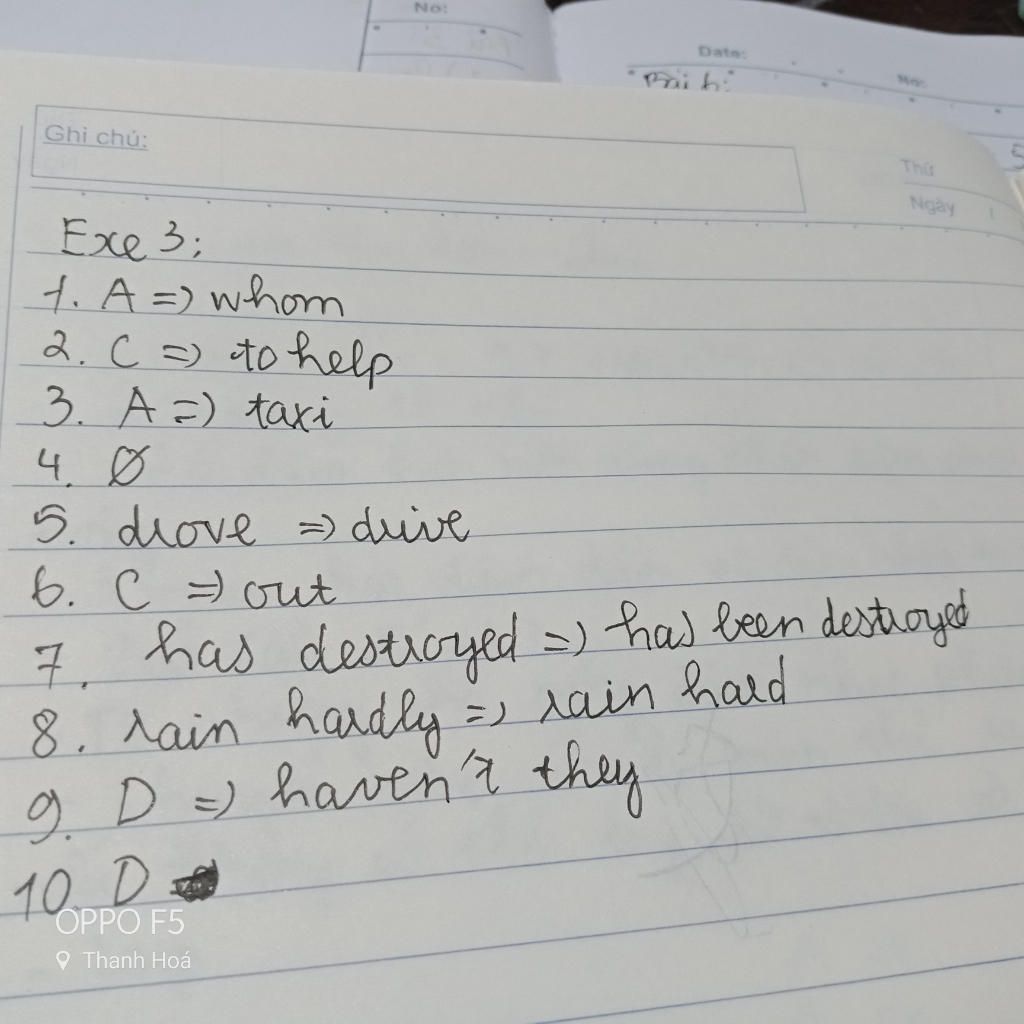 No:
Date:
No:
Bài 6:
Ghi chú:
Thứ
Ngày
Exe 3:
1. A => whom
2. C => to help
3. A => taxi
4. Ø
5. drove => drive
6. C => out
7. has destroyed => has been destroyed
8. rain hardly => rain hard
9. D => haven't they
10. D
OPPO F5
Thanh Hoá